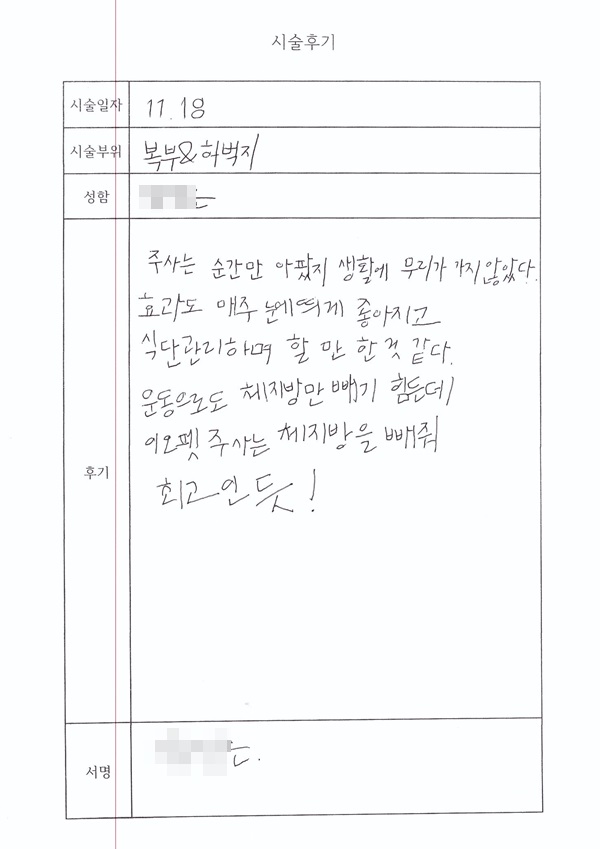 시술후기
시술일자 11. 18
시술부위 복부&허벅지
성함
후기
주사는 순간만 아팠지 생활에 무리가 가지 않았다.
효과도 매주 눈에띄게 좋아지고
식단관리하며 할 만 한 것 같다.
운동으로도 체지방만 빼기 힘든데
이오펫 주사는 체지방을 빼줘
최고인듯!
서명